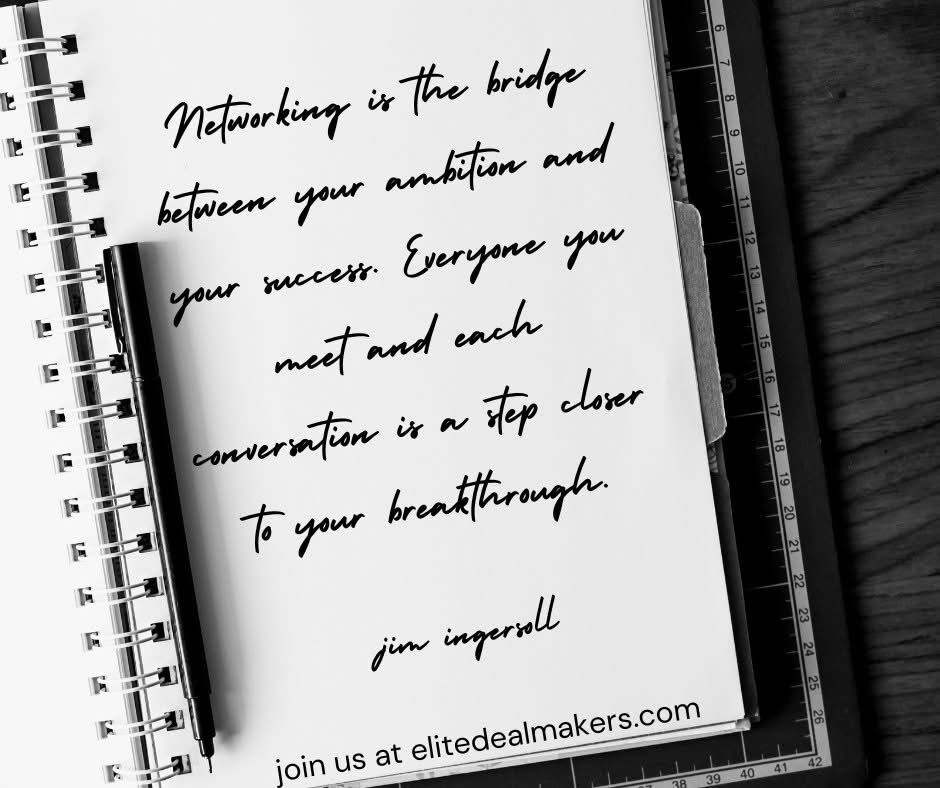 Networking is the bridge
between your ambition and
your success. Everyone you
meet and each
conversation is a step closer
to your breakthrough.
jim ingersoll
join us at elitedealmakers.com
6
7
8
9
10
11
12
13
14
15
16
17
18
19
20
21
22
23
24
25
26
38 39 40 41 42